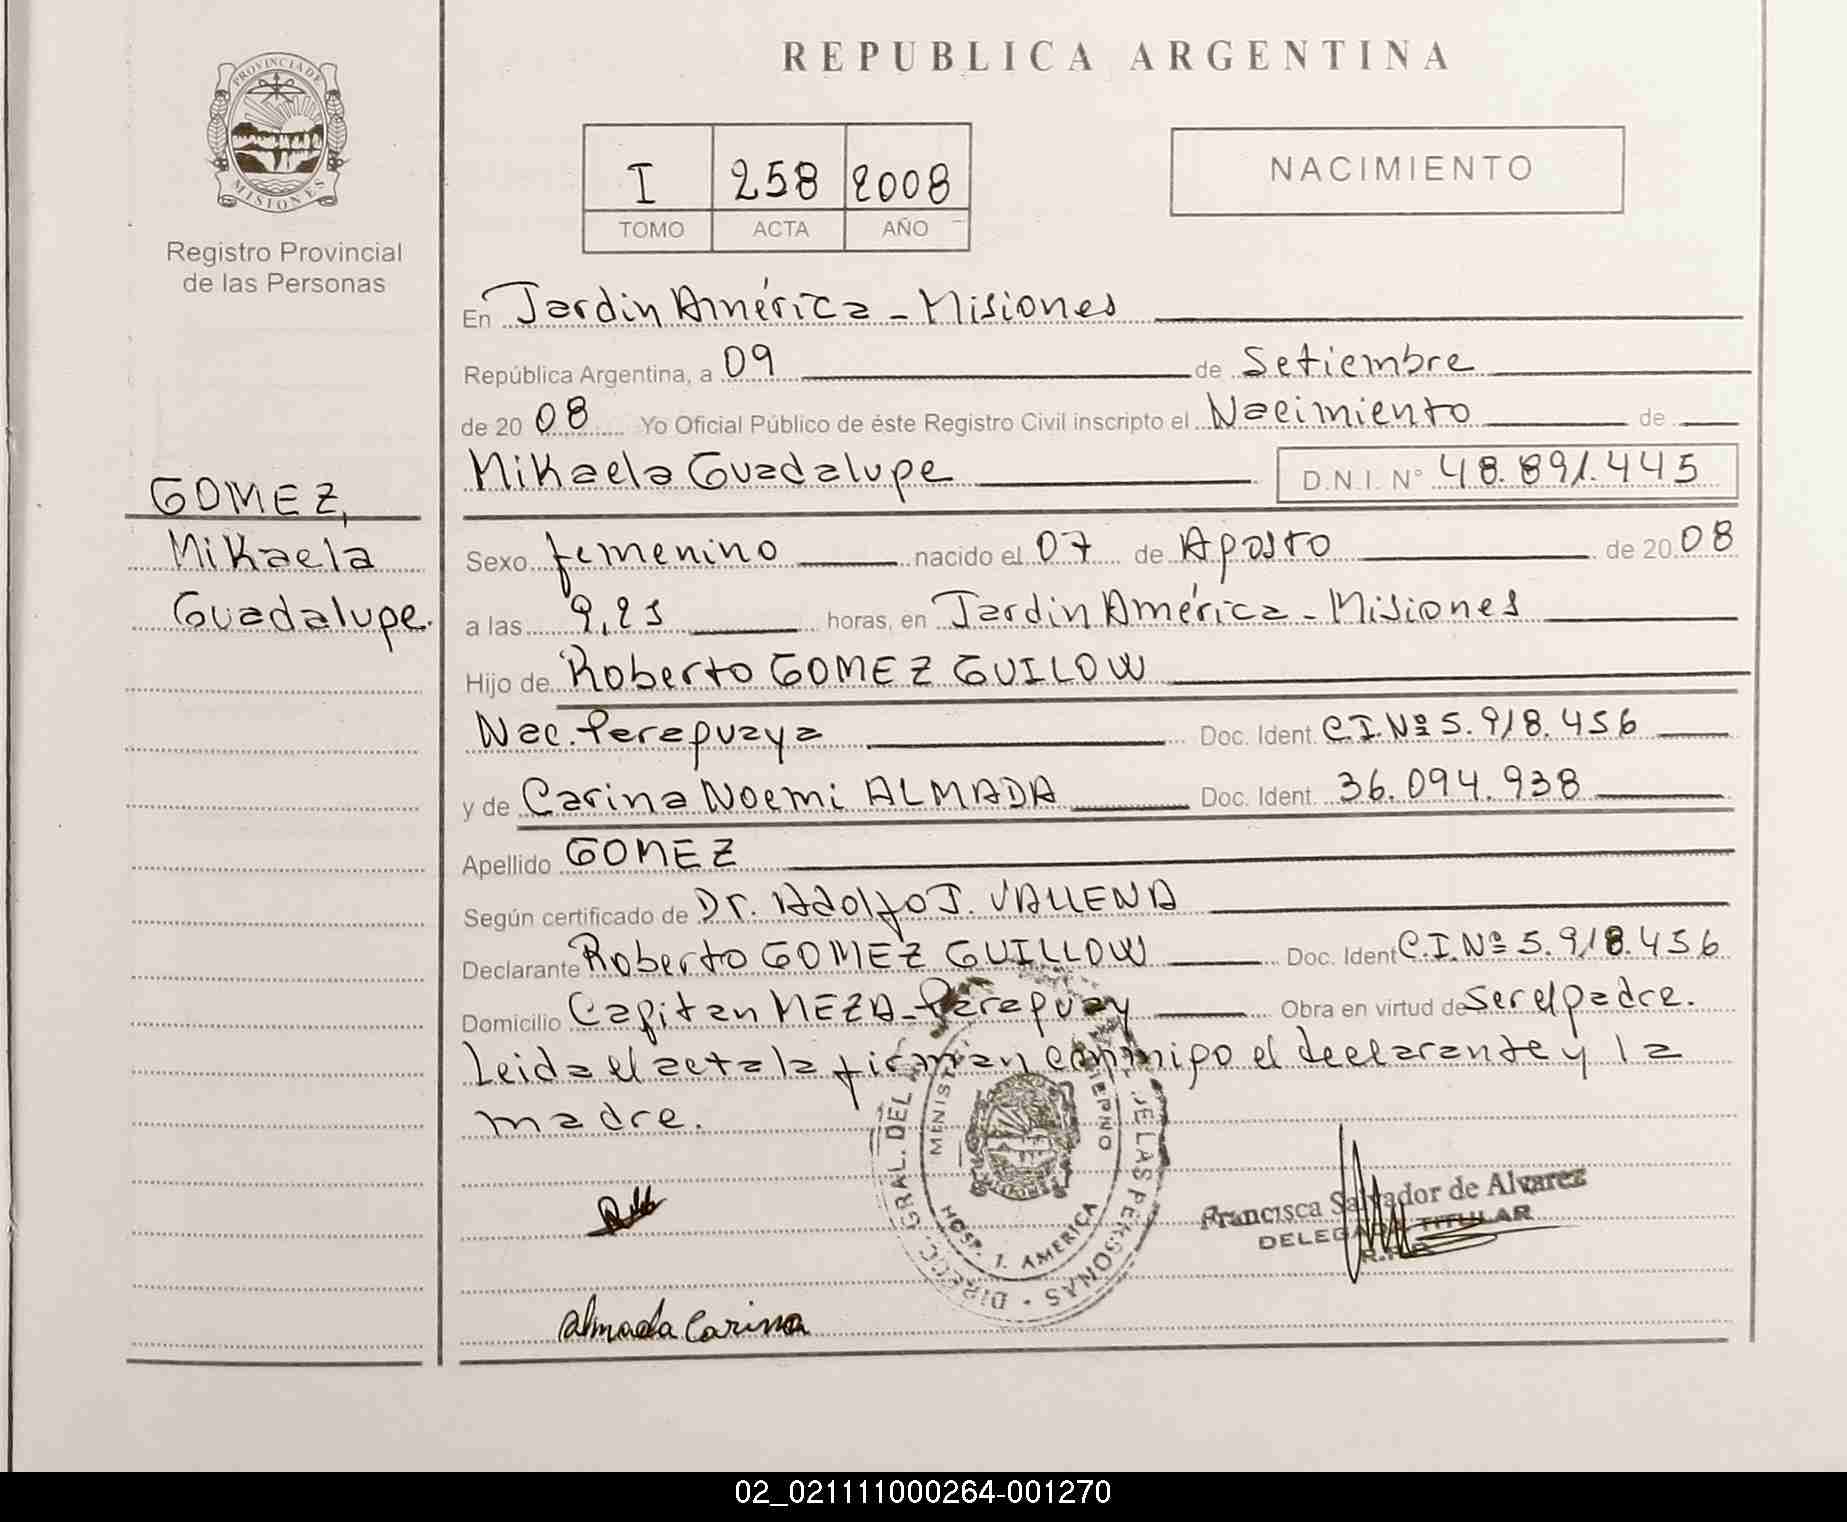 REPUBLICA ARGENTINA
PROVINCIA DE
MISIONES
Registro Provincial
de las Personas
I 258 2008
TOMO ACTA AÑO
NACIMIENTO
En Jardin América - Misiones
República Argentina, a 09 de Setiembre
de 20 08 Yo Oficial Público de éste Registro Civil inscripto el Nacimiento de
Mikaela Guadalupe D.N.I. Nº 48.891.445
GOMEZ,
Mikaela
Guadalupe.
Sexo femenino nacido el 07 de Agosto de 20 08
a las 9,25 horas, en Jardin América - Misiones
Hijo de Roberto GOMEZ GUILOW
Nac. Paraguaya Doc. Ident. C.I.Nº 5.918.456
y de Carina Noemi ALMADA Doc. Ident. 36.094.938
Apellido GOMEZ
Según certificado de Dr. Adolfo J. VALLENA
Declarante Roberto GOMEZ GUILLOW Doc. Ident C.I.Nº 5.918.456
Domicilio Capitan MEZA - Paraguay Obra en virtud de ser el padre.
Leida el acta la firman conmigo el declarante y la
madre.
GRAL. DEL DE LAS PERSONAS
HOSP. J. AMERICA
Francisca Salvador de Alvarez
DELEGADA TITULAR
R.P.P.
Almada Carina
02_021111000264-001270